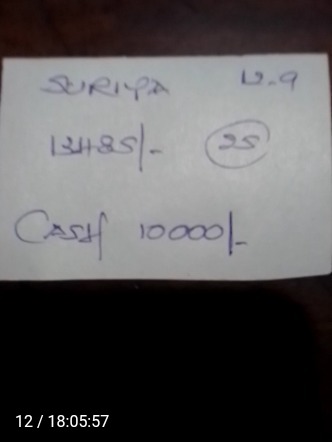 SURIYA 12-9
13485/- 25
CASH 10000/-
12 / 18:05:57